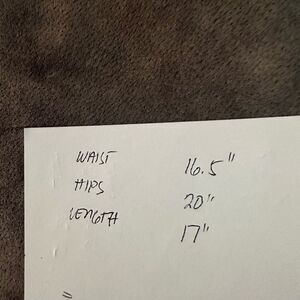 WAIST 16.5"
HIPS 20"
LENGTH 17"
"